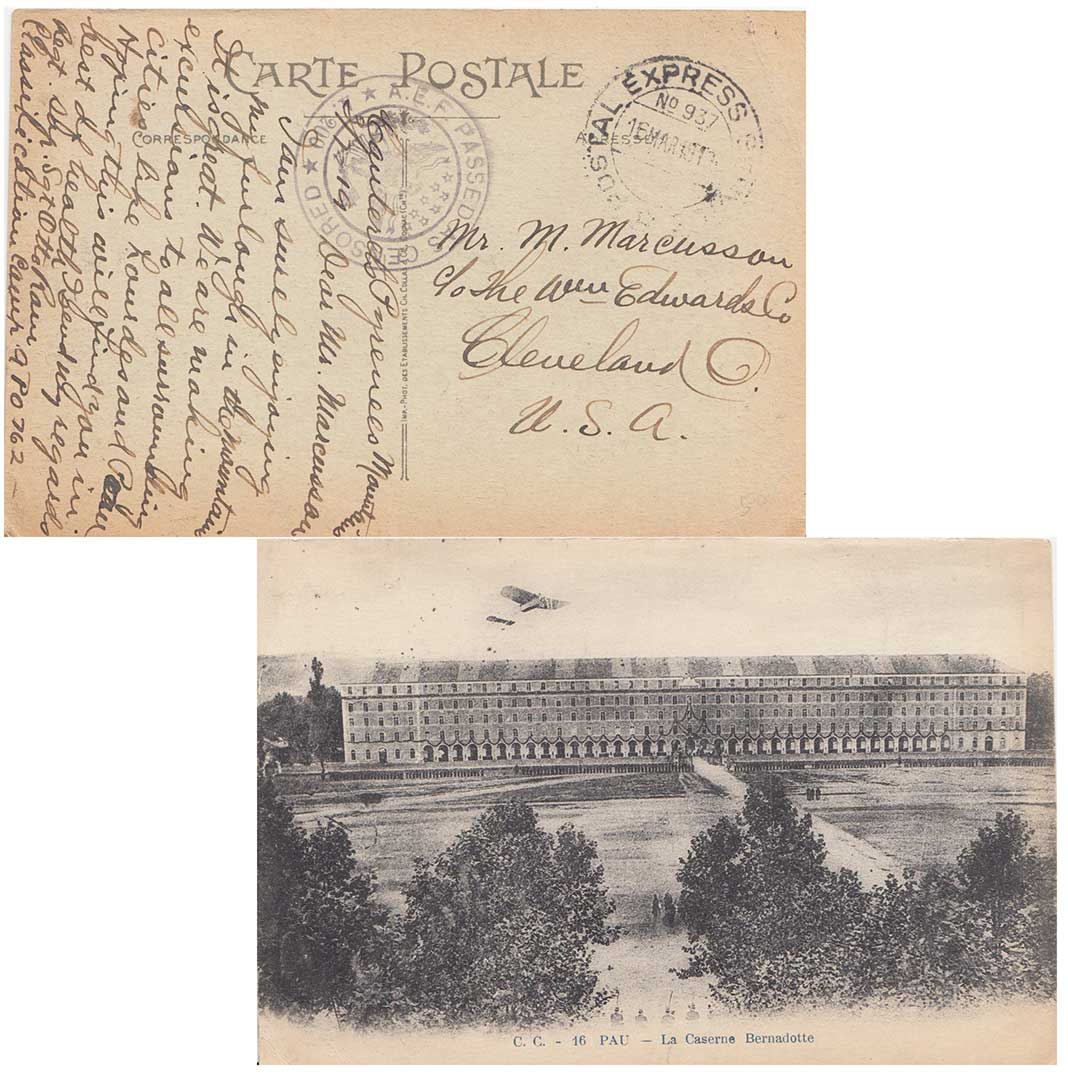 CARTE POSTALE
CORRESPONDANCE
ADRESSE
A.E.F. PASSED AS CENSORED
POSTAL EXPRESS S
No 937
16 MAR 191
Mr. M. Marcusson
c/o The Wm Edwards Co
Cleveland O.
U. S. A.
IMP.-PHOT. DES ETABLISSEMENTS CH. COLLAS
Pyrenees
19 Dear Mr. Marcusson
I am surely enjoying
my furlough in the mountain
It is great. We are making
excursions to all surrounding
cities like Lourdes and Pau
Hoping this will find you in
best of health I send my regards
Rgt. Sgt. Otto Raum
Classification Camp APO 762
C. C. - 16 PAU — La Caserne Bernadotte